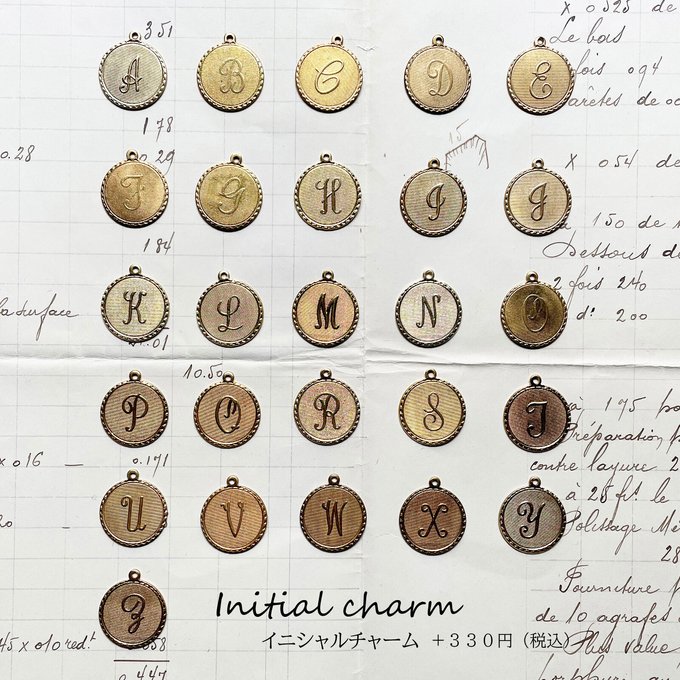 351
x 0525 de
Le bois
fois 094
arêtes de
A B C D E
178
0.28
0.29
15
x 054 de
F G H I J
à 150 de
184
Dessous de
2 fois 240
d: 200
la surface
K L M N O
.01
10.50
à 195
P Q R S T
Préparation,
contre layure 2
x 016 — 0.171
à 25 frt. le
U V W X Y
20
Polissage Mé
28
Fourniture
Z
de 10 agrafes
Initial charm
イニシャルチャーム +330円(税込)
45 x 010 redt
058
Plus value
0.447